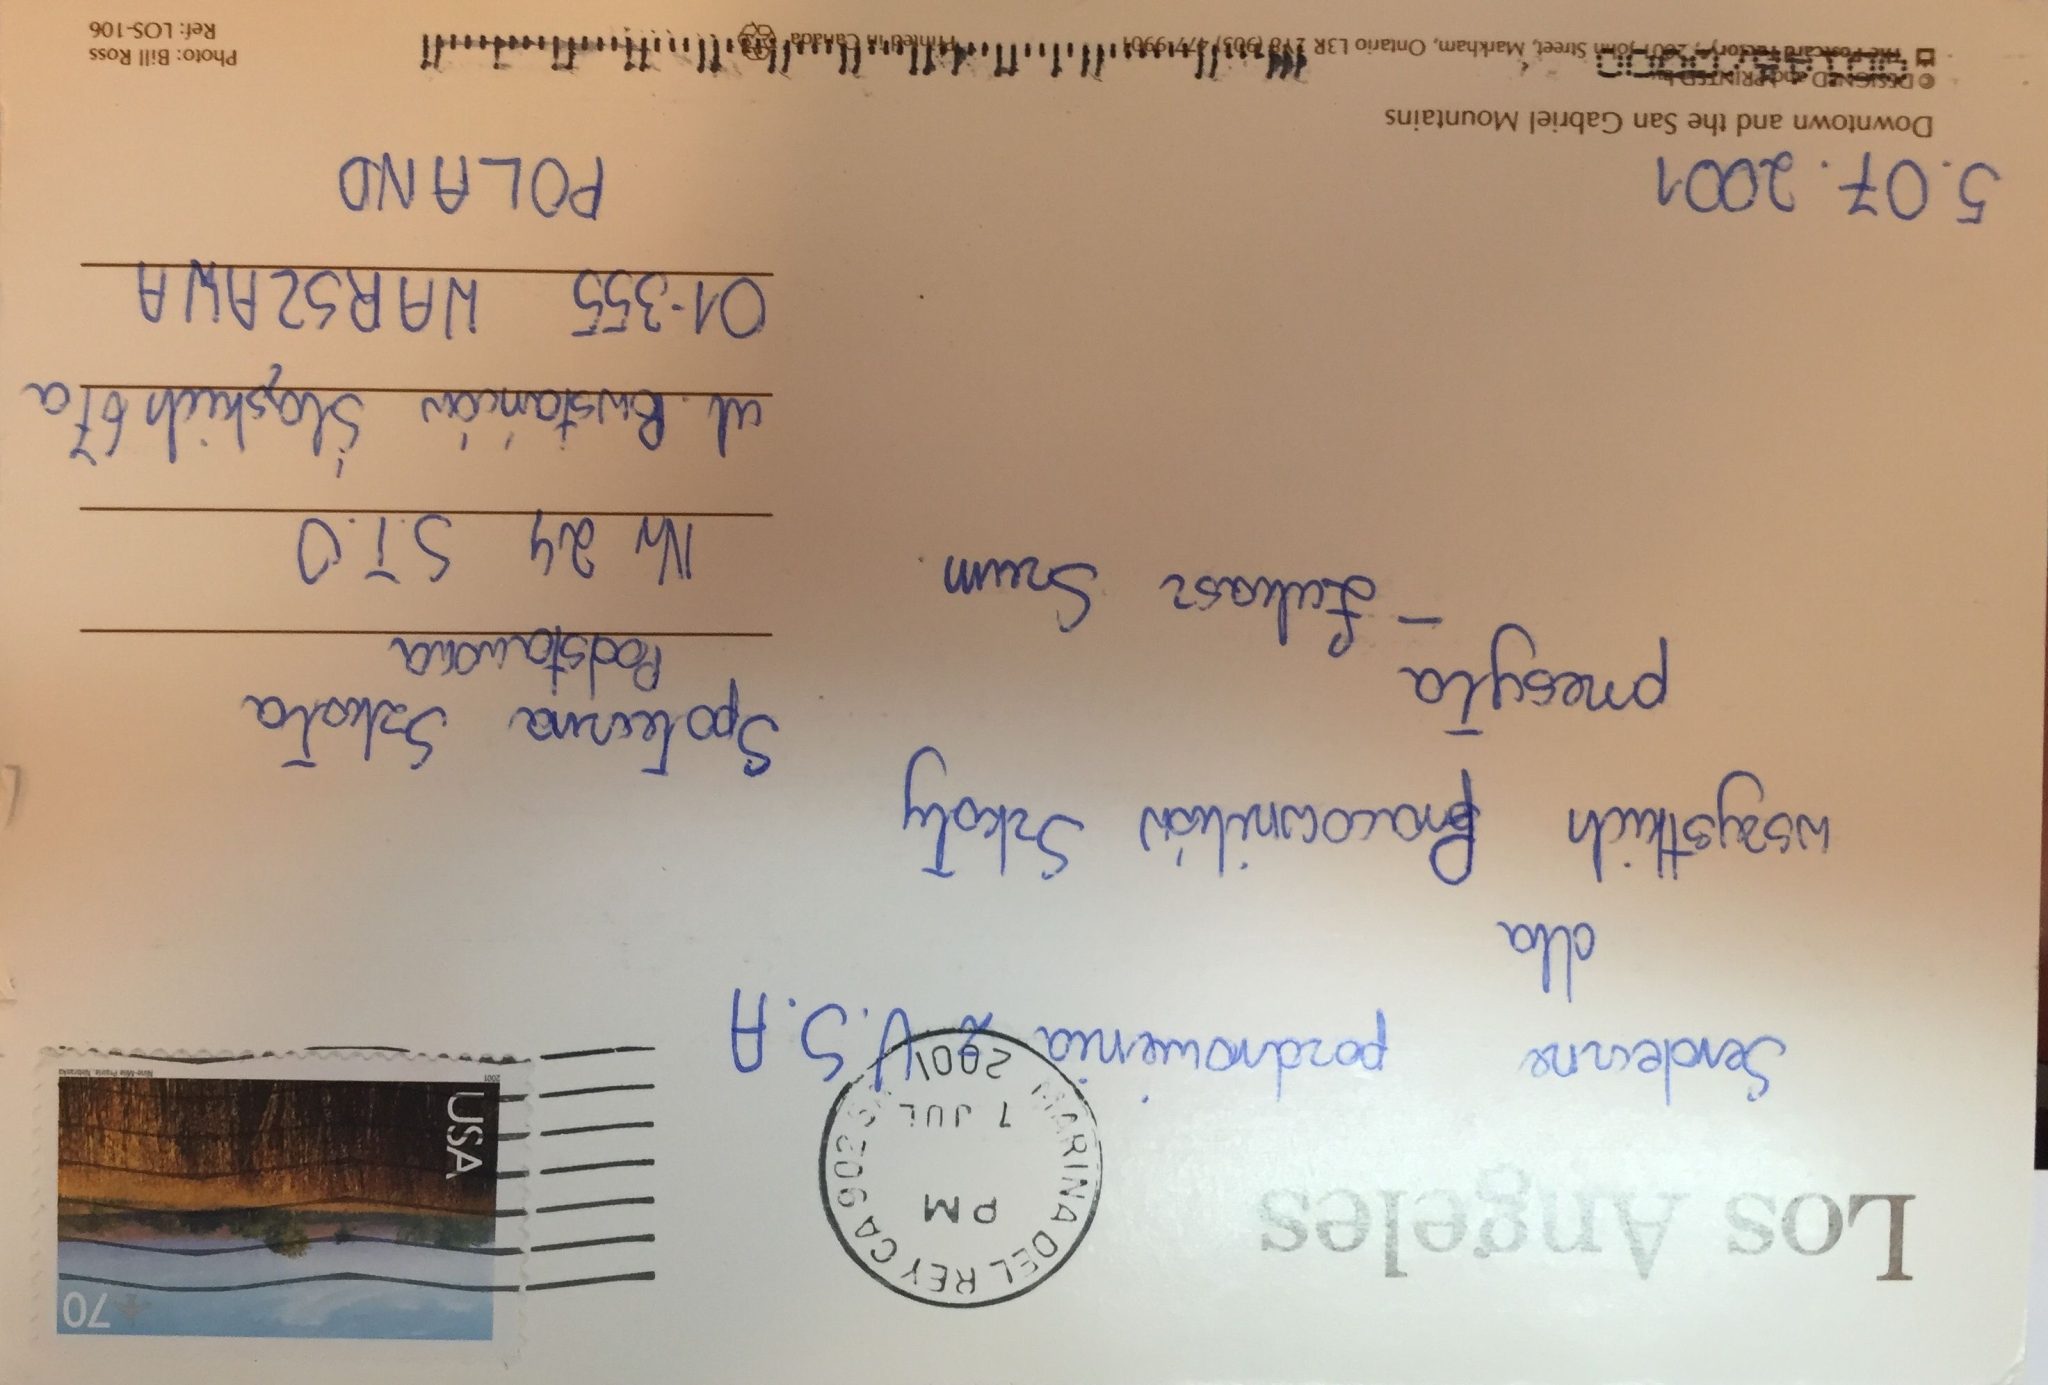 Los Angeles
MARINA DEL REY CA 902
PM
7 JUL
2001
70
USA
2001
Nine-Mile Prairie, Nebraska
Serdeczne pozdrowienia z U.S.A
dla
wszystkich Pracowników Szkoły
przesyła
– Łukasz Szum
5.07.2001
Społeczna Szkoła
Podstawowa
Nr 24 S.T.O
ul. Powstańców Śląskich 67a
01-355 WARSZAWA
POLAND
Downtown and the San Gabriel Mountains
© DESIGNED and PRINTED
The Postcard Factory, 2801 John Street, Markham, Ontario L3R 2Y8 (905) 477-9901
Printed in Canada
Photo: Bill Ross
Ref: LOS-106